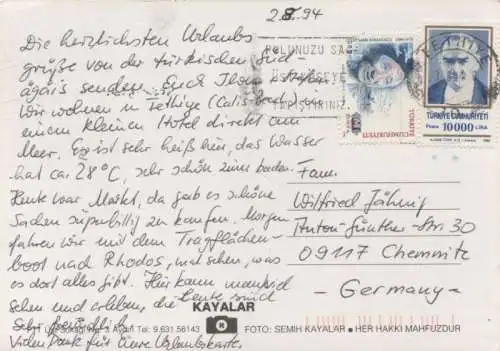 2.8.94
Die herzlichsten Urlaubs
grüße von der türkischen Süd-
ägäis senden Euch Ilona
Wir wohnen in Fethiye (Calis
einem kleinen Hotel direkt am
Meer. Es ist sehr heiß hier, das Wasser
hat ca. 28°C, sehr schön zum baden.
Heute war Markt, da gab es schöne
Sachen superbillig zu kaufen. Morgen
fahren wir mit dem Tragflächen-
boot nach Rhodos, mal sehen, was
es dort alles gibt. Hier kann man viel
sehen und erleben, die Leute sind
sehr
Vielen Dank für Eure Urlaubskarte.
POLUNUZU
FETHİYE
TÜRKİYE CUMHURİYETİ
TÜRKİYE CUMHURİYETİ
Posta 10000 LİRA
Fam.
Wilfried Jähnig
Anton-Günther-Str. 30
09117 Chemnitz
- Germany -
KAYALAR
Tel: 9.631 56143 FOTO: SEMIH KAYALAR • HER HAKKI MAHFUZDUR